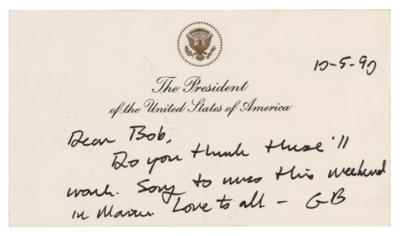 10-5-90
The President
of the United States of America
Dear Bob,
Do you think these'll
work. Sorry to miss this weekend
in Maine. Love to all – GB